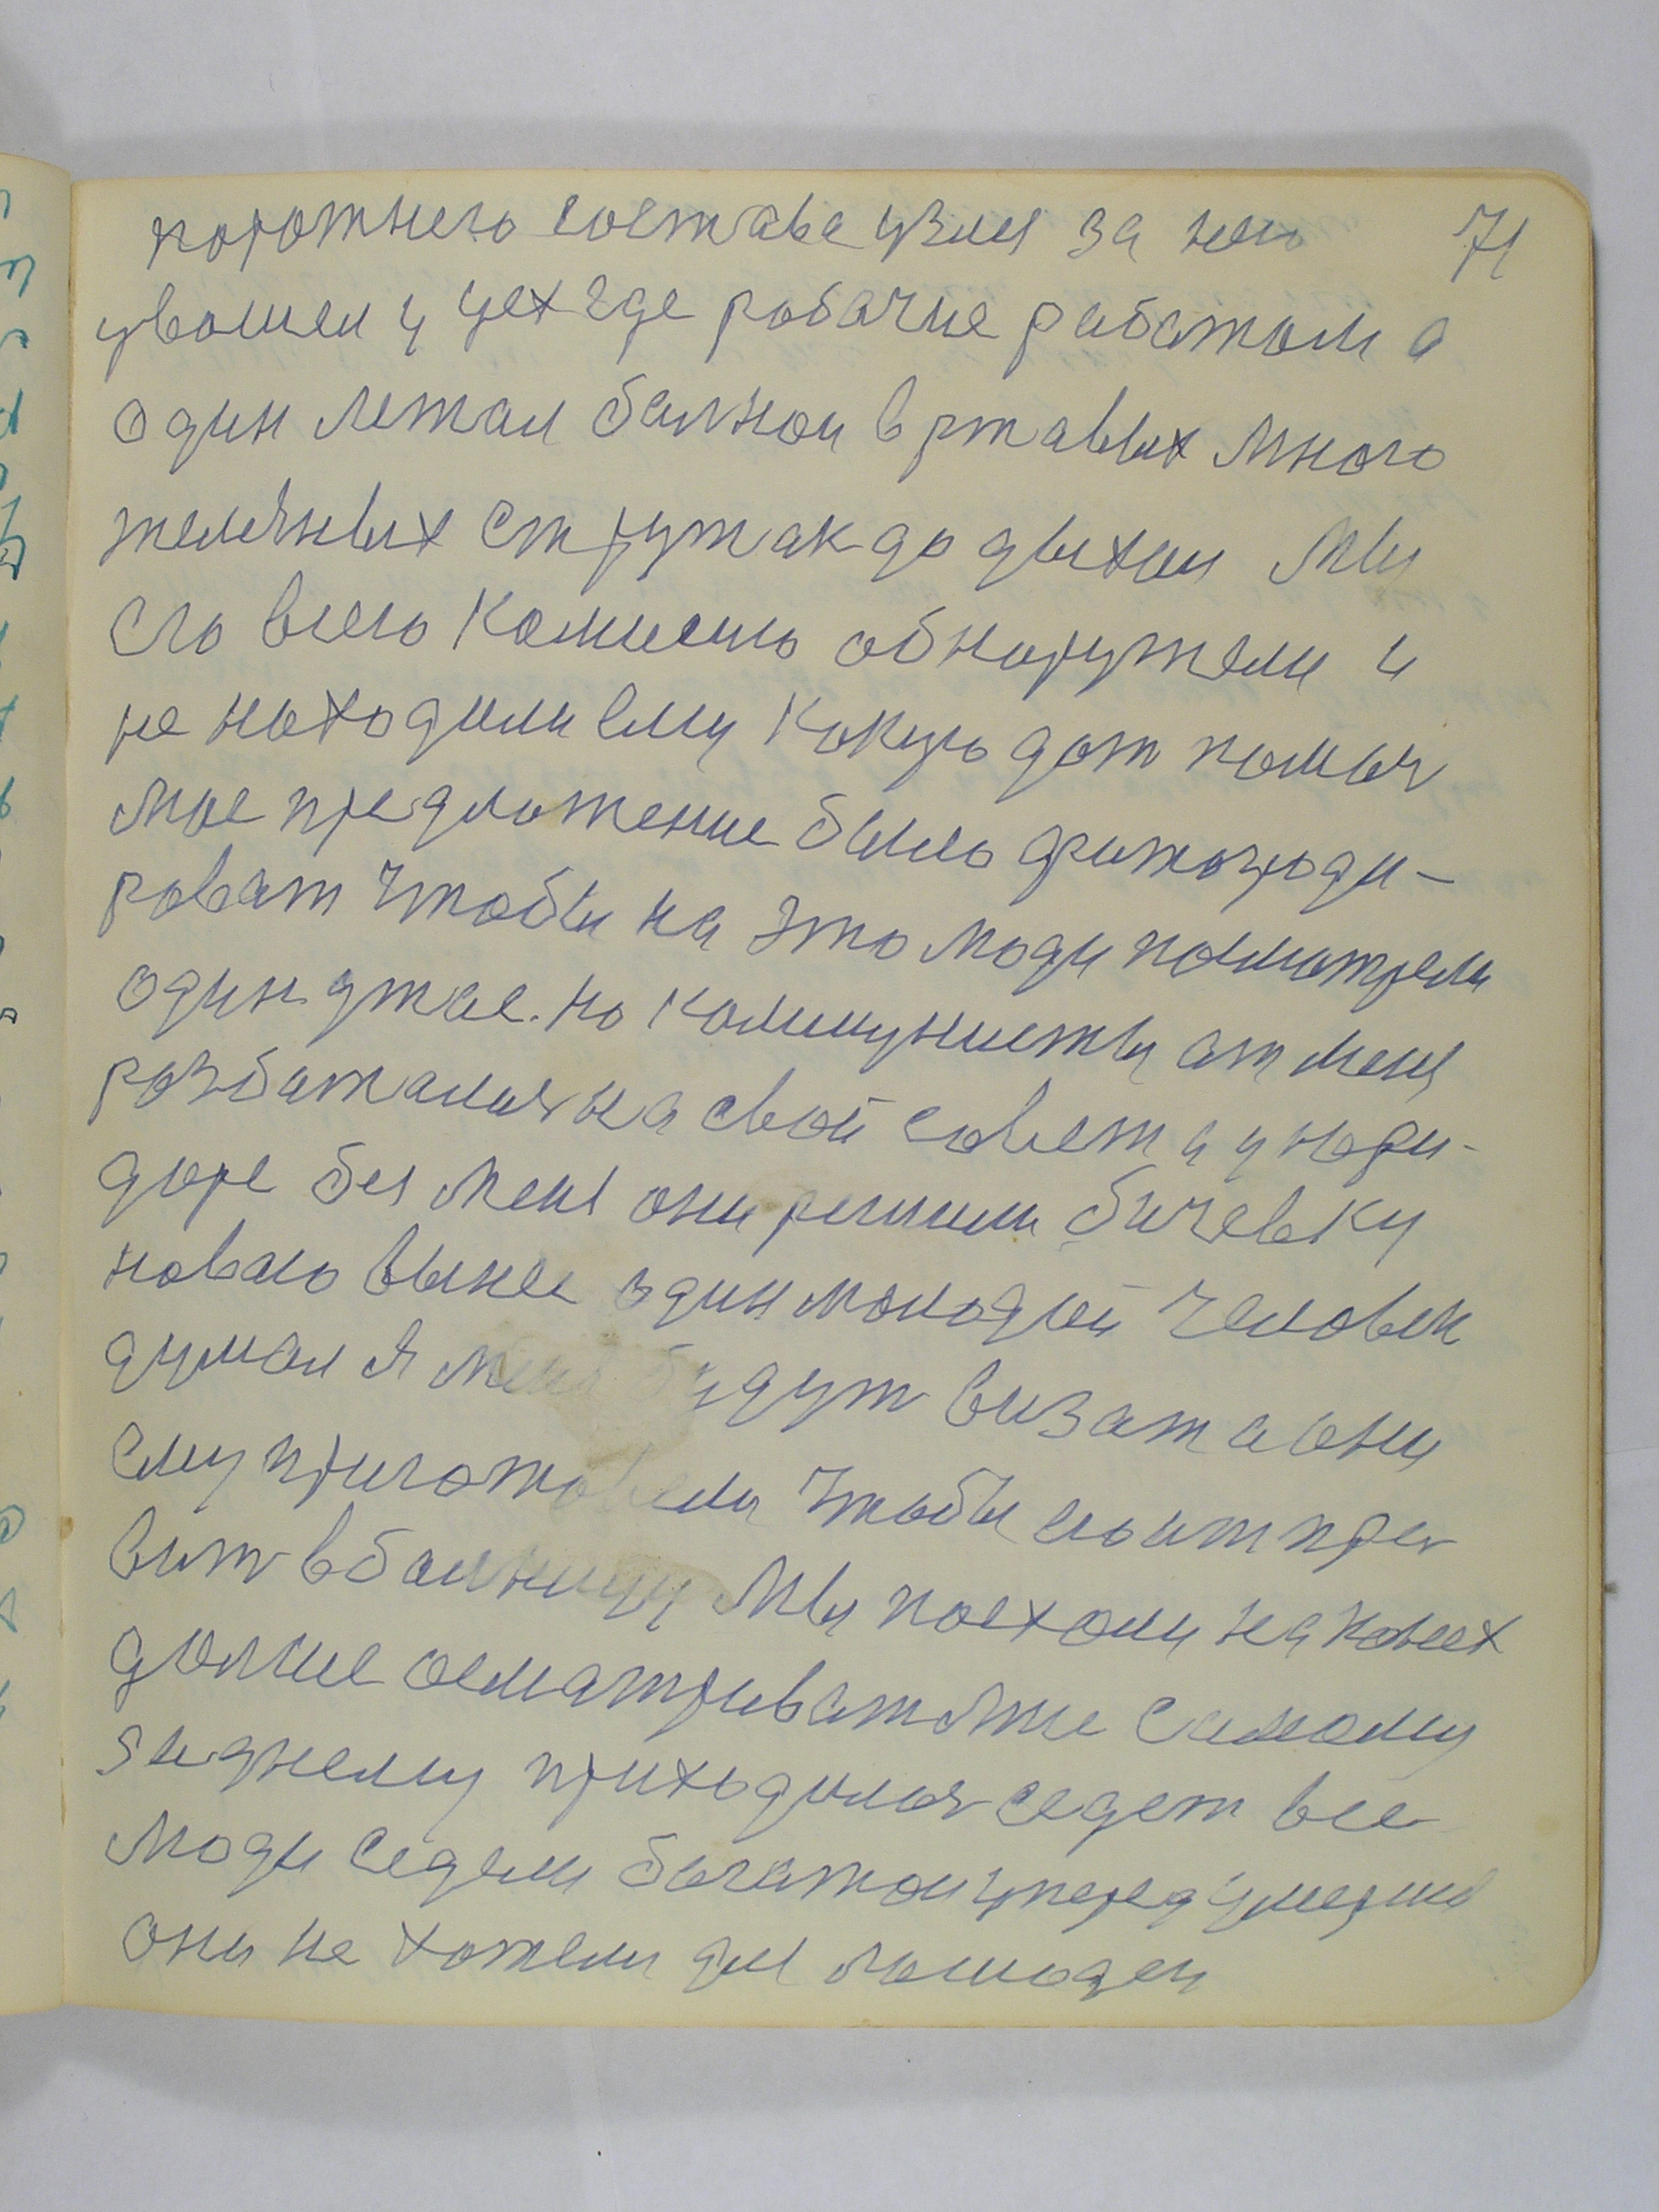 порожнего состава узял за нею 71
увошел у цех где робочие работали а
один лежал балной в ржавых много
железных стружак додыхал Мы
его всею Комиссию обнаружели и
не находили ему Какую дат помоч
мое предложение было фитогроди-
роват чтобы на это люди посмотрели
один ужас. но Коммунисты от меня
розбажалис на свой совет и у кори-
доре без меня они решили бичевку
новаю вынес один молодой человек
думал я меня будут визат а они
ему приготовели чтобы его отпра
вит в балницу Мы поехали на конех
далше осматриват Мне самому
заднему приходилос седет все
люди седели богатои упереду
они не хотели для лошадей